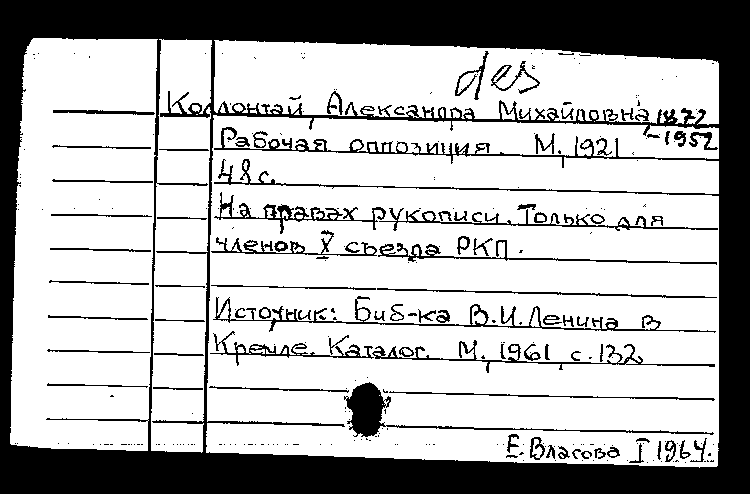 des
Коллонтай, Александра Михайловна 1872
-1952
Рабочая оппозиция. М., 1921.
48 с.
На правах рукописи. Только для
членов X съезда РКП.
Источник: Биб-ка В.И. Ленина в
Кремле. Каталог. М., 1961, с. 132
Е. Власова I 1964.